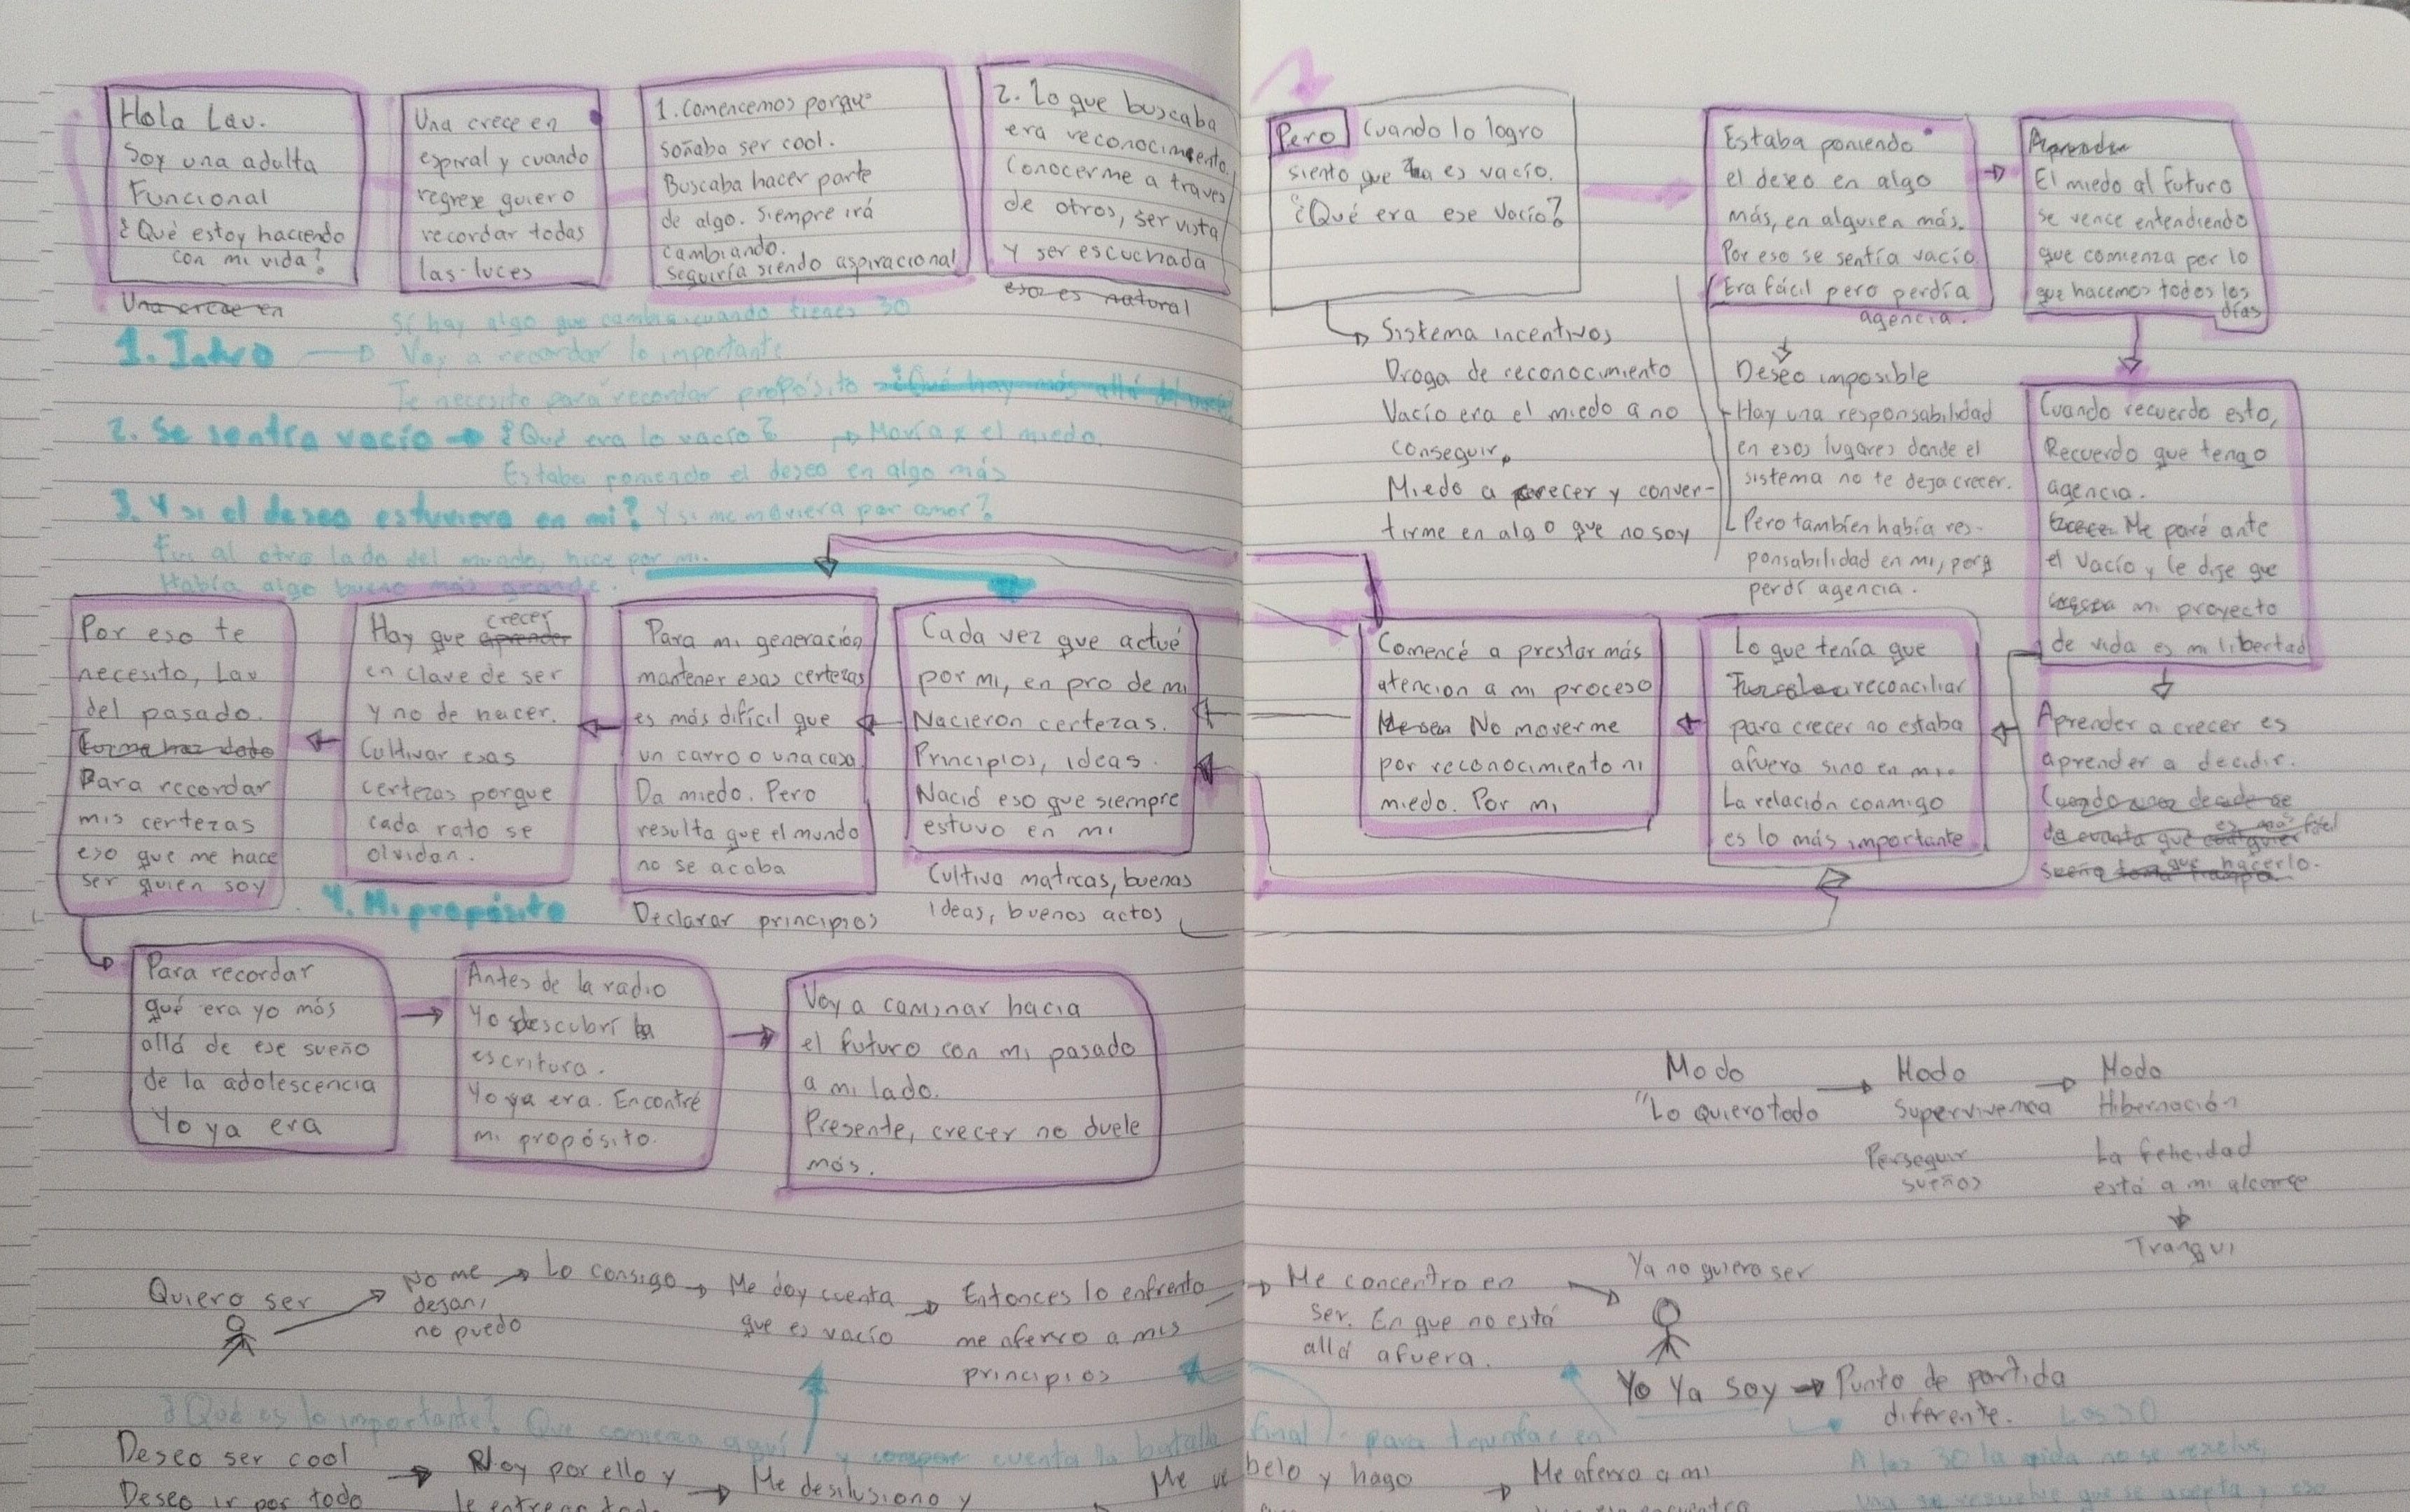 Hola Lau.
Soy una adulta
Funcional
¿Qué estoy haciendo
con mi vida?
Una crece en
Una crece en
espiral y cuando
regrese quiero
recordar todas
las luces
1. Comencemos porque
soñaba ser cool.
Buscaba hacer parte
de algo. Siempre irá
cambiando.
Seguiría siendo aspiracional
2. Lo que buscaba
era reconocimiento.
Conocerme a traves
de otros, ser vista
y ser escuchada
eso es natural
Sí hay algo que cambia cuando tienes 30
1. Intro → Voy a recordar lo importante
Te necesito para recordar propósito ¿Qué hay más allá del
2. Se sentía vacío → ¿Qué era lo vacío? → Movía x el miedo.
Estaba poniendo el deseo en algo más
3. Y si el deseo estuviera en mi? Y si me moviera por amor?
Fui al otro lado del mundo, hice por mi.
Había algo bueno más grande.
Pero Cuando lo logro
siento que es vacío.
¿Qué era ese vacío?
→ Sistema incentivos
Droga de reconocimiento
Vacío era el miedo a no
conseguir.
Miedo a crecer y conver-
tirme en algo que no soy
Estaba poniendo
el deseo en algo
más, en alguien más.
Por eso se sentía vacío
Era fácil pero perdía
agencia.
Deseo imposible
Hay una responsabilidad
en esos lugares donde el
sistema no te deja crecer.
Pero tambien había res-
ponsabilidad en mi, porq
perdí agencia.
Aprender
El miedo al futuro
se vence entendiendo
que comienza por lo
que hacemos todos los
días
Cuando recuerdo esto,
Recuerdo que tengo
agencia.
Me paré ante
el vacío y le dije que
mi proyecto
de vida es mi libertad
Aprender a crecer es
aprender a decidir.
Cuando una decide se
da cuenta que cualquier es más fácil
sueña que hacerlo.
Lo que tenía que
reconciliar
para crecer no estaba
afuera sino en mi.
La relación conmigo
es lo más importante
Comencé a prestar más
atencion a mi proceso
No moverme
por reconocimiento ni
miedo. Por mi
Cada vez que actué
por mi, en pro de mi
Nacieron certezas.
Principios, ideas.
Nació eso que siempre
estuvo en mi
Cultivo matricas, buenas
ideas, buenos actos
Para mi generación
mantener esas certezas
es más difícil que
un carro o una casa
Da miedo. Pero
resulta que el mundo
no se acaba
Declarar principios
Hay que aprender crecer
en clave de ser
y no de hacer.
Cultivar esas
certezas porque
cada rato se
olvidan.
Por eso te
necesito, Lau
del pasado.
Para recordar
mis certezas
eso que me hace
ser quien soy
4. Mi propósito
Para recordar
qué era yo más
allá de ese sueño
de la adolescencia
Yo ya era
Antes de la radio
Yo descubrí la
escritura.
Yo ya era. Encontré
mi propósito.
Voy a caminar hacia
el futuro con mi pasado
a mi lado.
Presente, crecer no duele
más.
Modo → Modo → Modo
"Lo quiero todo Supervivencia Hibernación
Perseguir
sueños
La felicidad
está a mi alcance
Tranqui
Quiero ser
No me
dejan,
no puedo
Lo consigo
Me doy cuenta
que es vacío
Entonces lo enfrento
me aferro a mis
principios
Me concentro en
ser. En que no está
allá afuera.
Ya no quiero ser
Yo Ya soy → Punto de partida
diferente. Los 30
¿Qué es lo importante? Que comienza aquí y cuenta la batalla final para triunfar en
A los 30 la vida no se resuelve,
una se resuelve que se acepta y eso
Deseo ser cool
Deseo ir por todo
Voy por ello y
le entrego todo
Me desilusiono y
Me rebelo y hago
Me aferro a mi